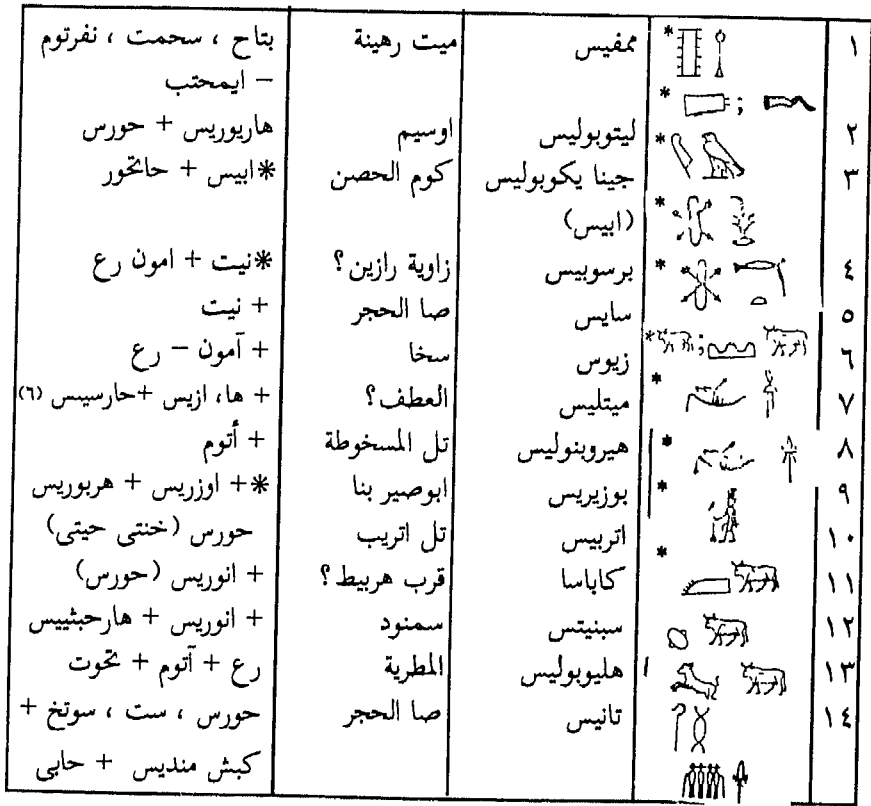 ١ * ممفيس ميت رهينة بتاح ، سحمت ، نفرتوم
* ; – ايمحتب
٢ * ليتوبوليس اوسيم هاربوريس + حورس
٣ جينا يكوبوليس كوم الحصن *ابيس + حاتحور
* (ابيس)
٤ * برسوبيس زاوية رازين؟ *نيت + امون رع
٥ سايس صا الحجر + نيت
٦ * ; زيوس سخا + آمون – رع
٧ * ميتليس العطف؟ + ها، ازيس +حارسيس (٦)
٨ * هيروبنوليس تل المسخوطة + أتوم
٩ * بوزيريس ابوصير بنا *+ اوزريس + هربوريس
١٠ اتربيس تل اتريب حورس (خنتى حيتى)
١١ * كاباسا قرب هربيط؟ + انوريس (حورس)
١٢ سبنيتس سمنود + انوريس + هارحبثييس
١٣ هليوبوليس المطرية رع + آتوم + تحوت
١٤ تانيس صا الحجر حورس ، ست ، سوتخ +
كبش منديس + حابى